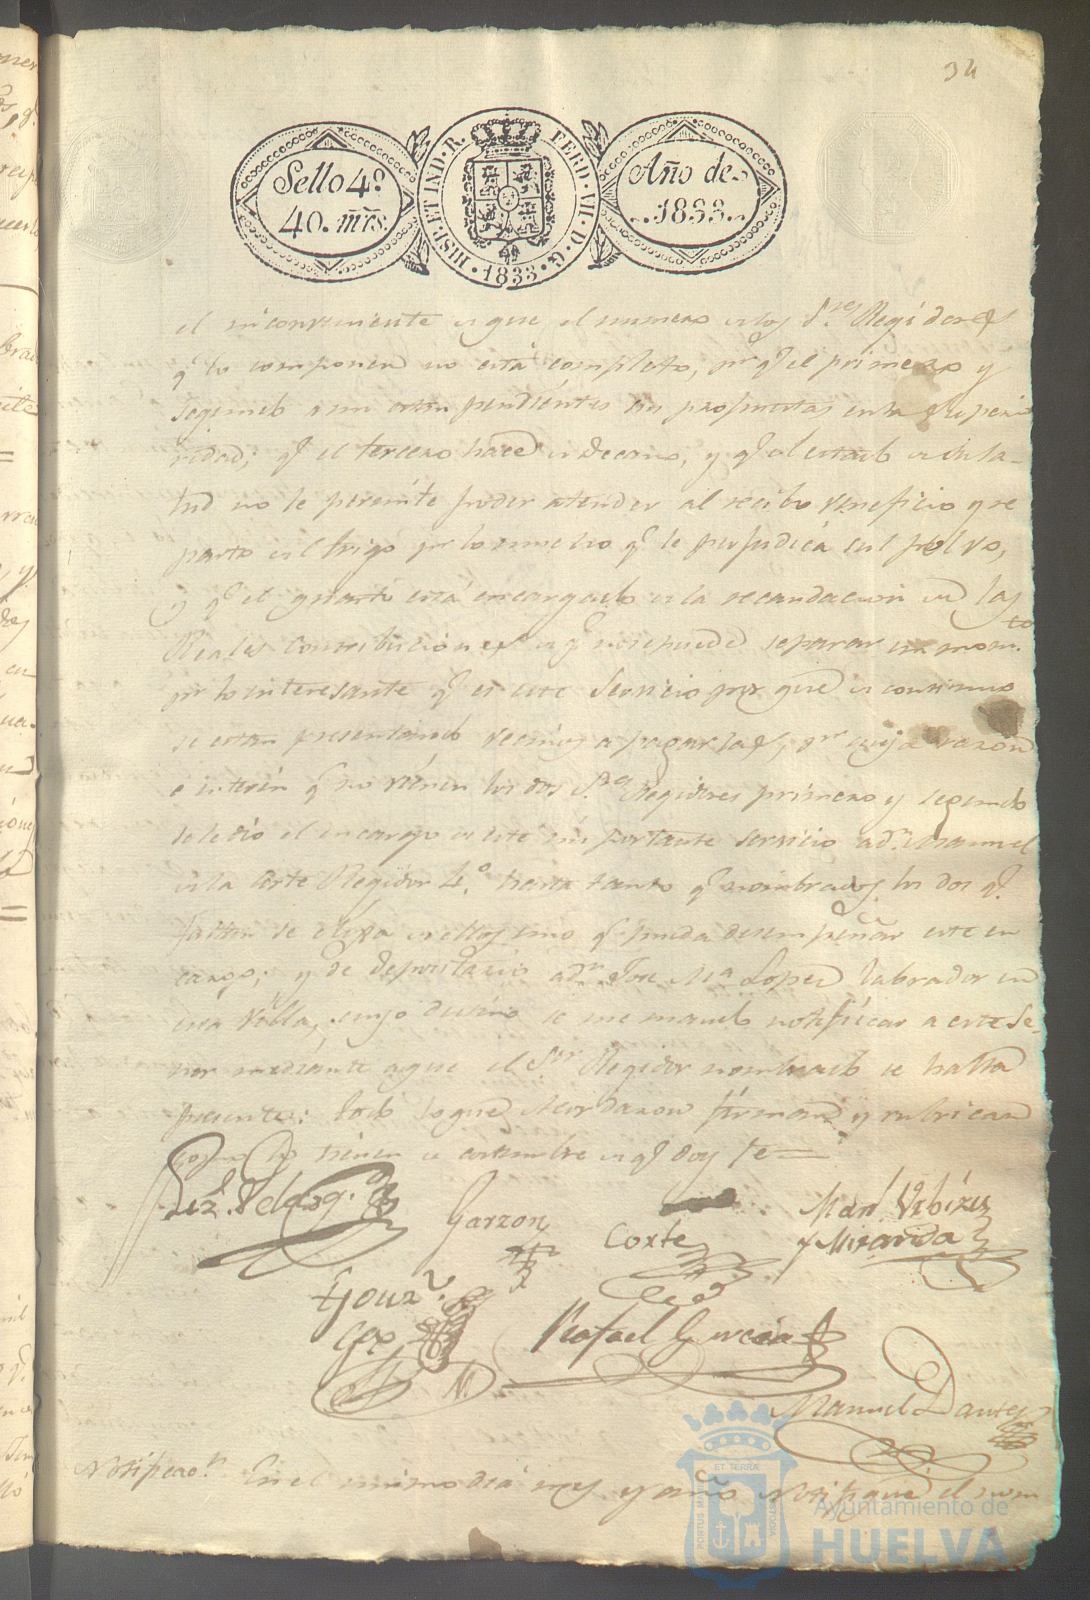 34
Sello 4º
40. mrs.
HISP. ET IND. R. FERD. VII. D. G. 1833.
Año de
1833.
el inconveniente de que el numero de los S.res Regidores
q.e lo componen no está completo, p.r q.e el primero y
segundo aun estan pendientes sus propuestas en la Superio
ridad; q.e el tercero hace de Decano, y q.e el estado de su sa-
lud no le permite poder atender al recibo veneficio y re
parto del trigo por lo mucho q.e le perjudica el polvo,
y q.e el quarto está encargado de la recaudacion de las
Reales Contribuciones de q.e no se puede separar un mom.to
por lo interesante q.e es este Servicio por que de continuo
se estan presentando vecinos a pagarlas, p.r cuya razon
e interin q.e no vienen los dos S.res Regidores primero y segundo
se le dió el encargo de este importante servicio a d.n Manuel
de la Corte Regidor 4.º hasta tanto q.e nombrados los dos q.e
faltan se elija de ellos uno q.e pueda desempeñar este en
cargo; y de depositario a d.n José M.a Lopez labrador en
esta Villa, cuyo destino se me mandó notificar a este Se-
ñor mediante a que el S.or Regidor nombrado se halla
presente: todo lo que acordaron firman y rubrican
como lo tienen de costumbre de q.e doy fe=
Liz.do Velazq.z
Garzon
Corte
Man.l
y Miranda
Gonz.z
Rafael Garcia
Manuel
Notificac.n En el mismo dia mes y año Notifiqué el nom
ET TERRA
PORTUS MARIS
CUSTODIA
Ayuntamiento de
HUELVA